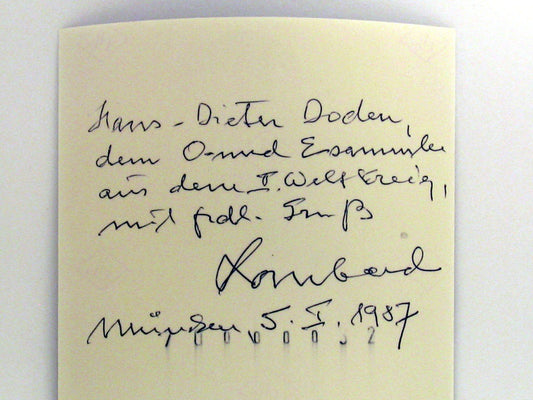 Hans-Dieter Doden,
dem O- und Esammler
aus dem II. Weltkrieg,
mit frdl. Gruß
Lombard
München, 5. I. 1987